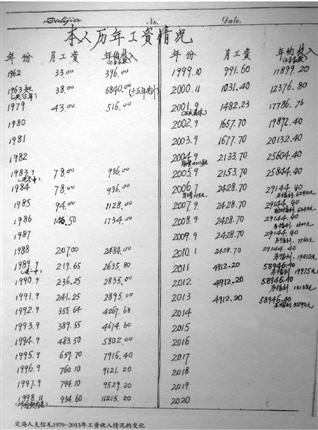 Date.
No.
本人历年工资情况
年份 月工资 年的收入
1962 33.00 396.00
1963 38.00 6840.00
1979 43.00 516.00
1980
1981
1982
1983.9 78.00 936.00
1984 78.00 936.00
1985 94.00 1128.00
1986 1734.00
1987
1988 207.00 2484.00
1989.7 219.65 2635.80
1990.9 236.25 2835.00
1991.9 241.25 2895.00
1992.9 355.64 4267.68
1993.9 389.55 4674.60
1994.9 483.50 5802.00
1995.9 659.70 7916.40
1996.9 760.10 9121.20
1997.9 794.10 9529.20
1998.11 934.60 11215.20
年份 月工资 年的收入
1999.10 991.60 11899.20
2000.11 1031.40 12376.80
2001.9 1482.23 17786.76
2002.9 1657.70 19892.40
2003.9 1677.70 20132.40
2004.9 2133.70 25604.40
2005.9 2153.70 25844.40
2006.7 2428.70 29144.40
2007.9 2428.70 29144.40
2008.9 2428.70 29144.40
2009.9 2428.70 29144.40
2010.1 2428.70 29144.40
2011 4912.20 58946.40
2012 4912.20 58946.40
2013 4912.20 58946.40
2014
2015
2016
2017
2018
2019
2020
定海人支信礼1979—2013年工资收入情况的变化